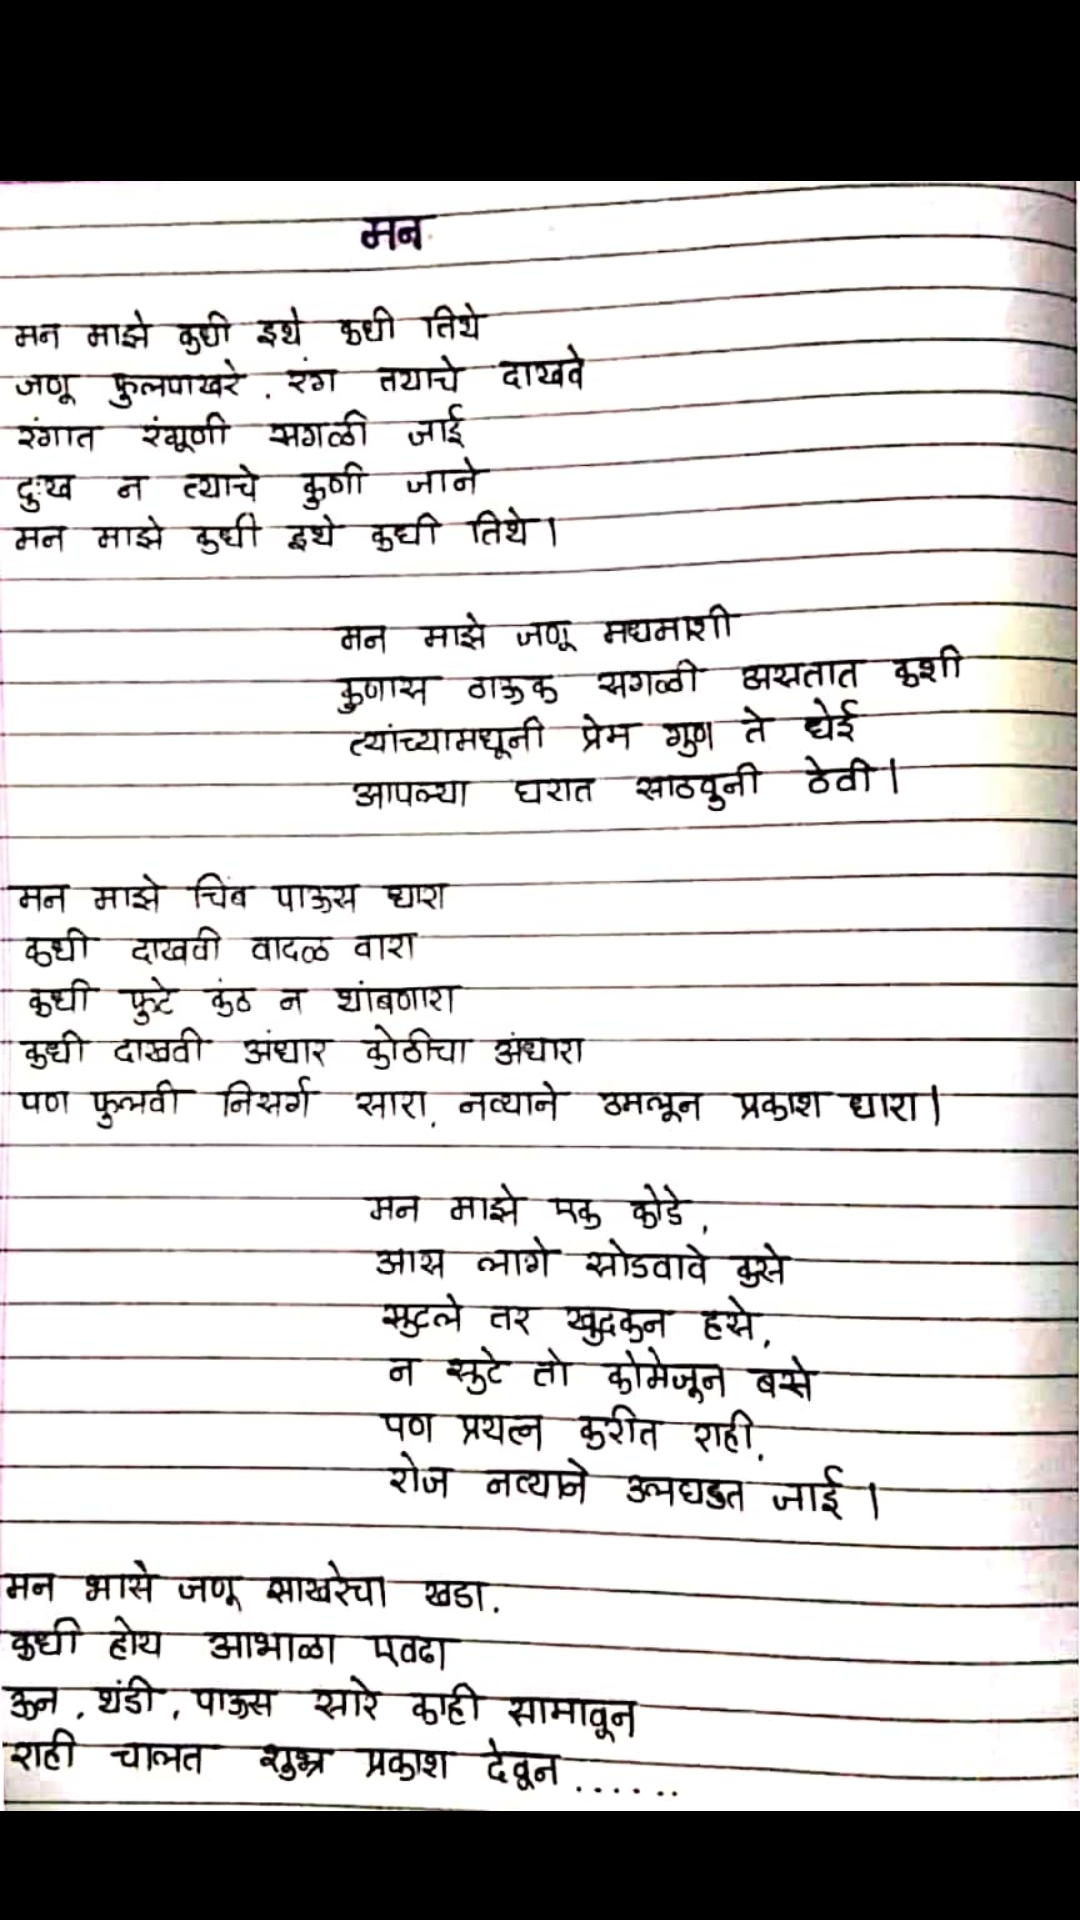 मन
मन माझे कधी इथे कधी तिथे
जणू फुलपाखरे . रंग तयाचे दाखवे
रंगात रंगूणी सगळी जाई
दुःख न त्याचे कुणी जाने
मन माझे कधी इथे कधी तिथे।
मन माझे जणू मधमाशी
कुणास ठाऊक सगळी असतात कशी
त्यांच्यामधूनी प्रेम गुण ते घेई
आपल्या घरात साठवुनी ठेवी।
मन माझे चिंब पाऊस धारा
कधी दाखवी वादळ वारा
कधी फुटे कंठ न थांबणारा
कधी दाखवी अंधार कोठीचा अंधारा
पण फुलवी निसर्ग सारा, नव्याने उमलून प्रकाश धारा।
मन माझे एक कोडे,
आस लागे सोडवावे कसे
सुटले तर खुदकन हसे,
न सुटे तो कोमेजून बसे
पण प्रयत्न करीत राही,
रोज नव्याने उलघडत जाई।
मन भासे जणू साखरेचा खडा.
कधी होय आभाळा एवढा
ऊन , थंडी , पाऊस सारे काही सामावून
राही चालत शुभ्र प्रकाश देवून ......